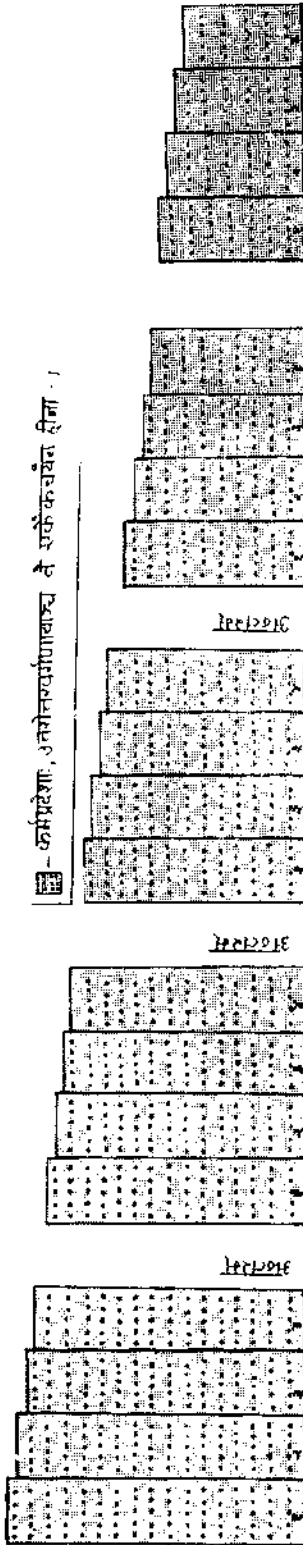 - कर्मप्रदेशा, उत्तरोत्तरवर्गणायाञ्च ते एकैकचयेन हीना ।
अन्तरम्
अन्तरम्
अन्तरम्